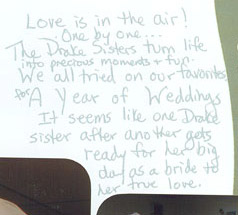 Love is in the air!
One by one...
The Drake Sisters turn life
into precious moments + fun.
We all tried on our favorites
for A Year of Weddings
It seems like one Drake
sister after another gets
ready for her big
day as a bride to
her true love.